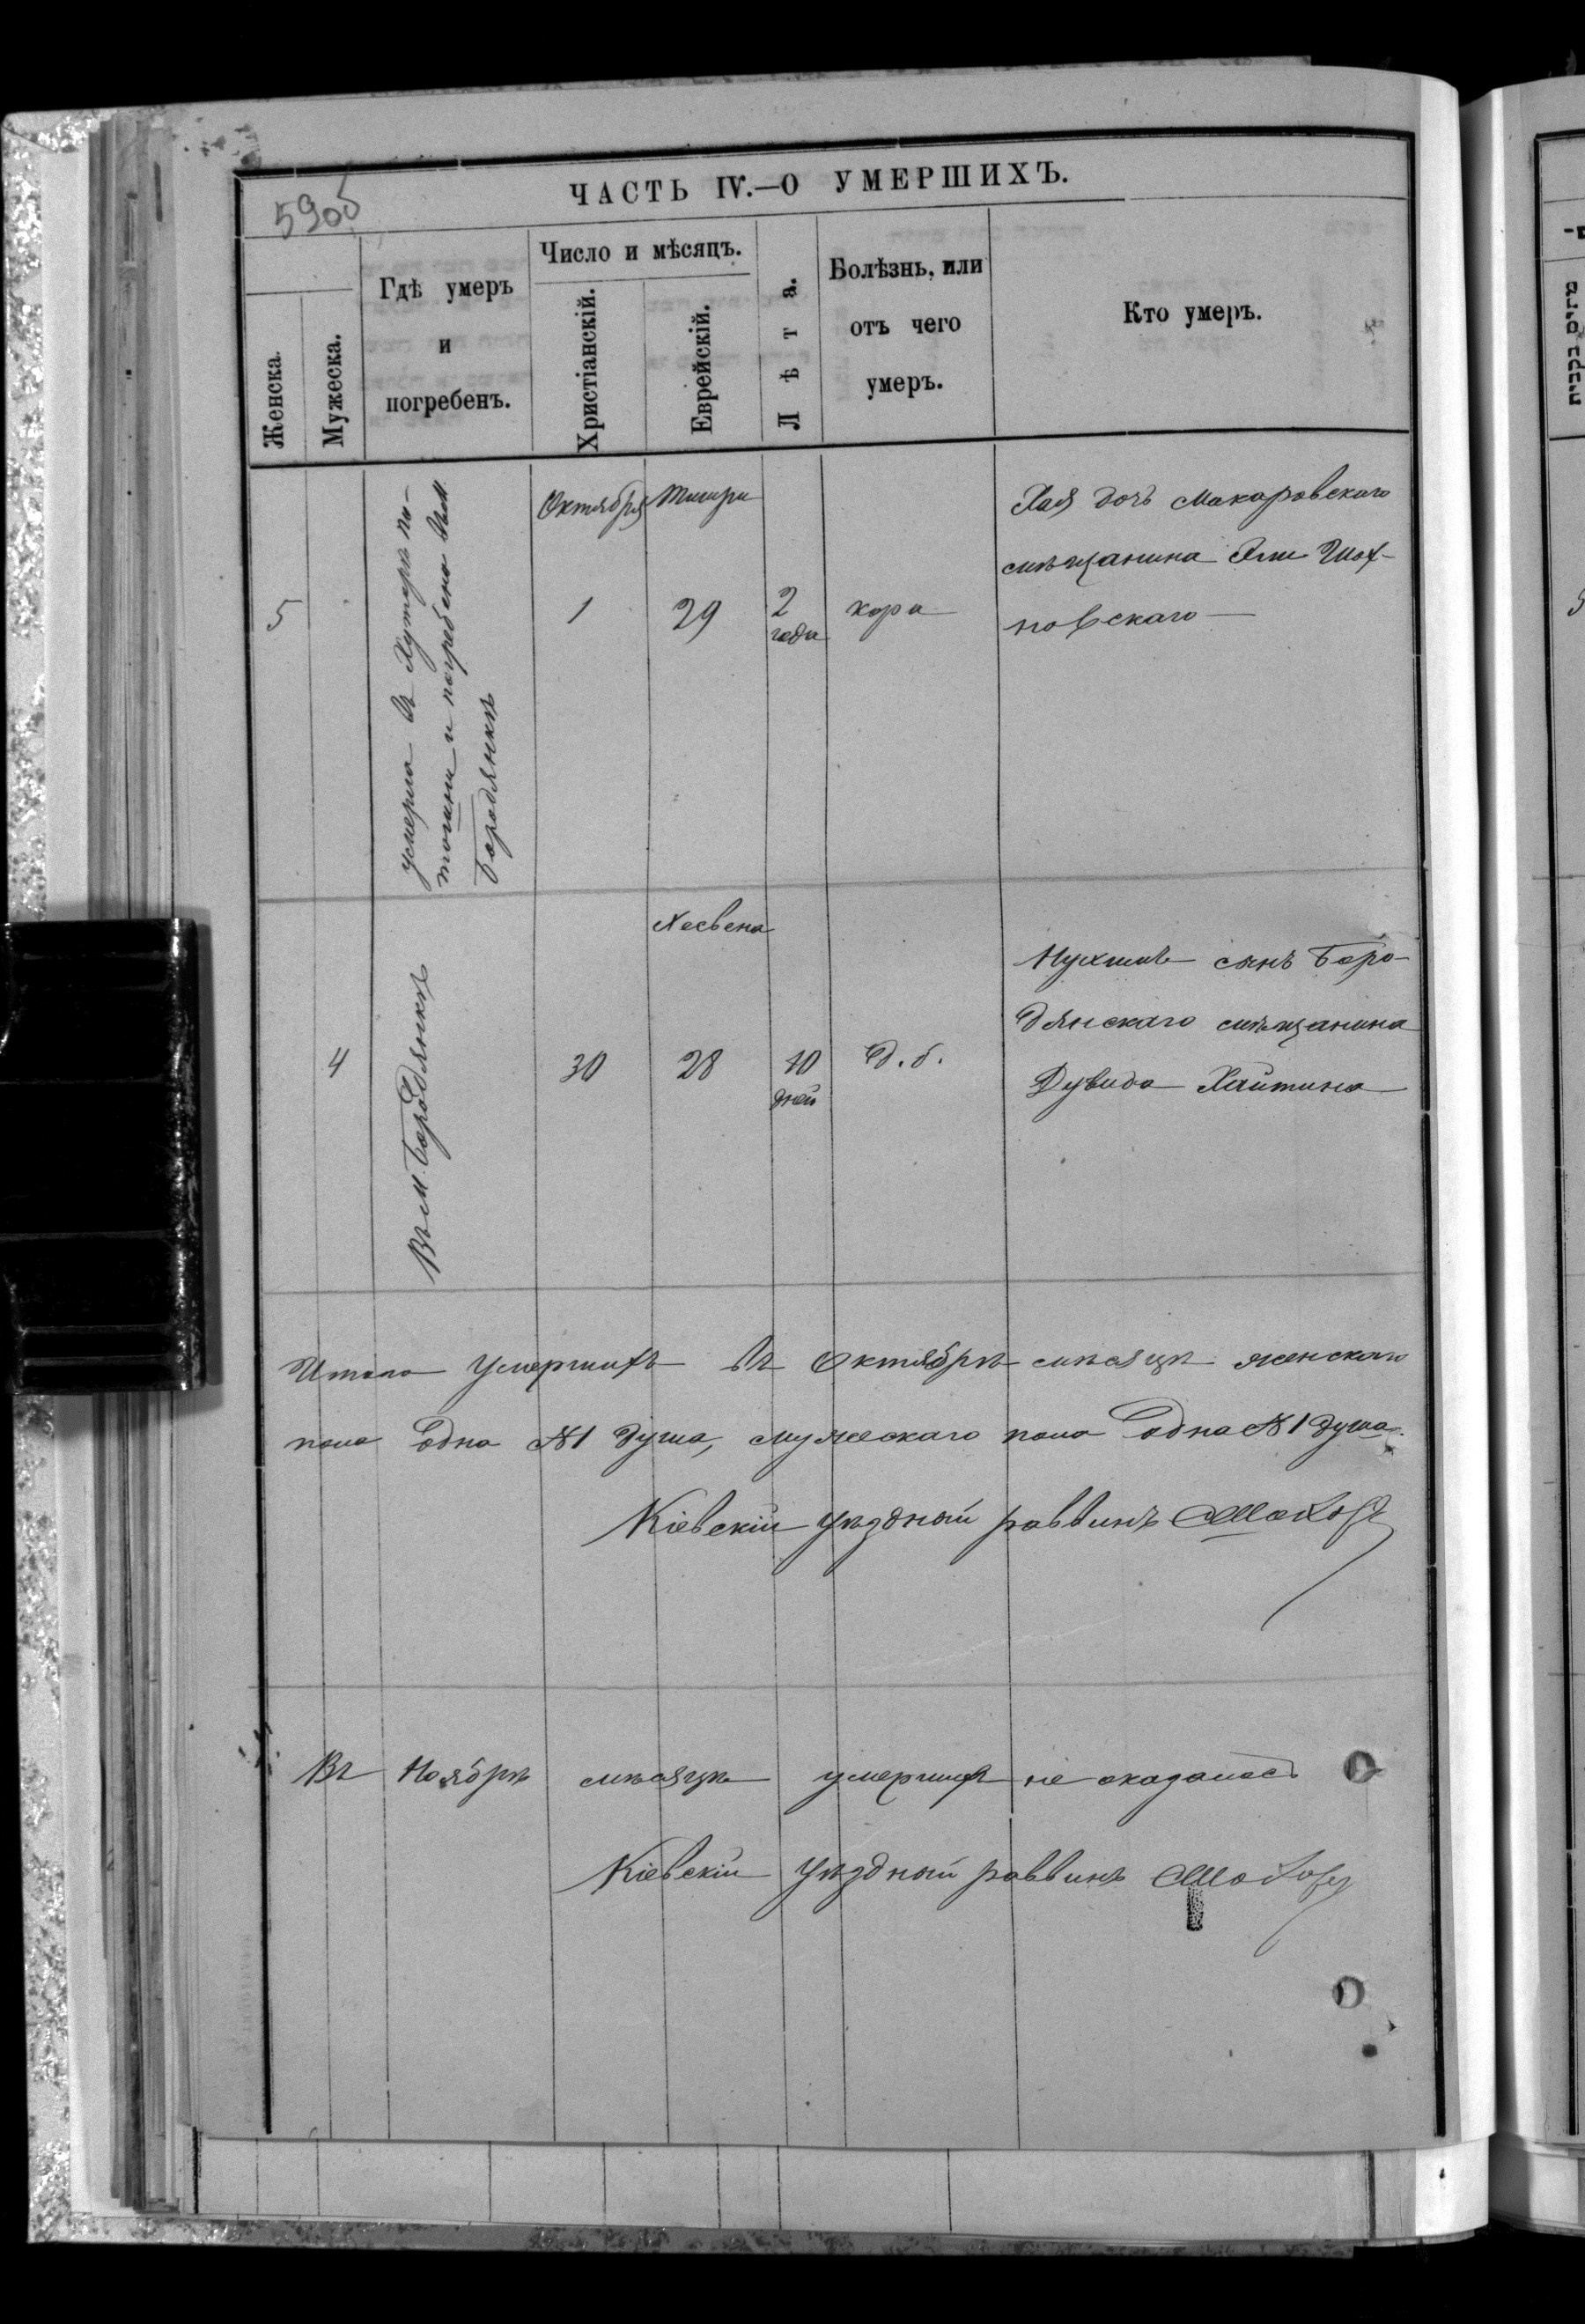 590б
ЧАСТЬ IV.—О УМЕРШИХЪ.
Женска.
Мужеска.
Гдѣ умеръ
и
погребенъ.
Число и мѣсяцъ.
Христіанскій.
Еврейскій.
Лѣта.
Болѣзнь, или
отъ чего
умеръ.
Кто умеръ.
5
умерла въ Хуторѣ
и погребена въ м
Бородянкѣ
Октября
1
Тишри
29
2
года
кори
Хая дочь Макаровскаго
мѣщанина
новскаго
4
Въ м. Бородянкѣ
30
Хесвена
28
10
дней
Д. б.
Нухимъ сынъ Боро-
дянскаго мѣщанина
Дувида Хаитина
Итого умершихъ въ Октябрѣ мѣсяцѣ женскаго
пола одна №1 душа, мужескаго пола одна №1 душа.
Кіевскій уѣздный раввинъ
Въ Ноябрѣ мѣсяцѣ умершихъ не оказалось
Кіевскій уѣздный раввинъ
5